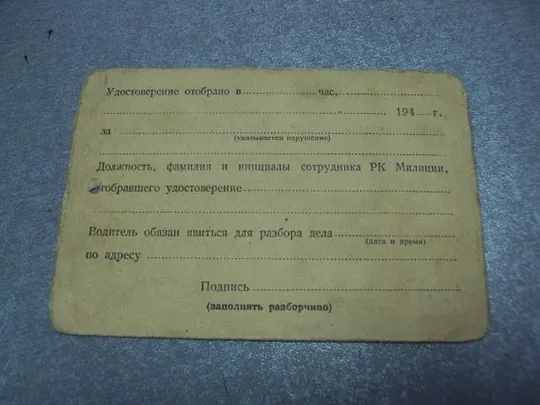 Удостоверение отобрано в час.
194 г.
за
(указывается нарушение)
Должность, фамилия и инициалы сотрудника РК Милиции,
отобравшего удостоверение
Водитель обязан явиться для разбора дела
(дата и время)
по адресу
Подпись
(заполнять разборчиво)